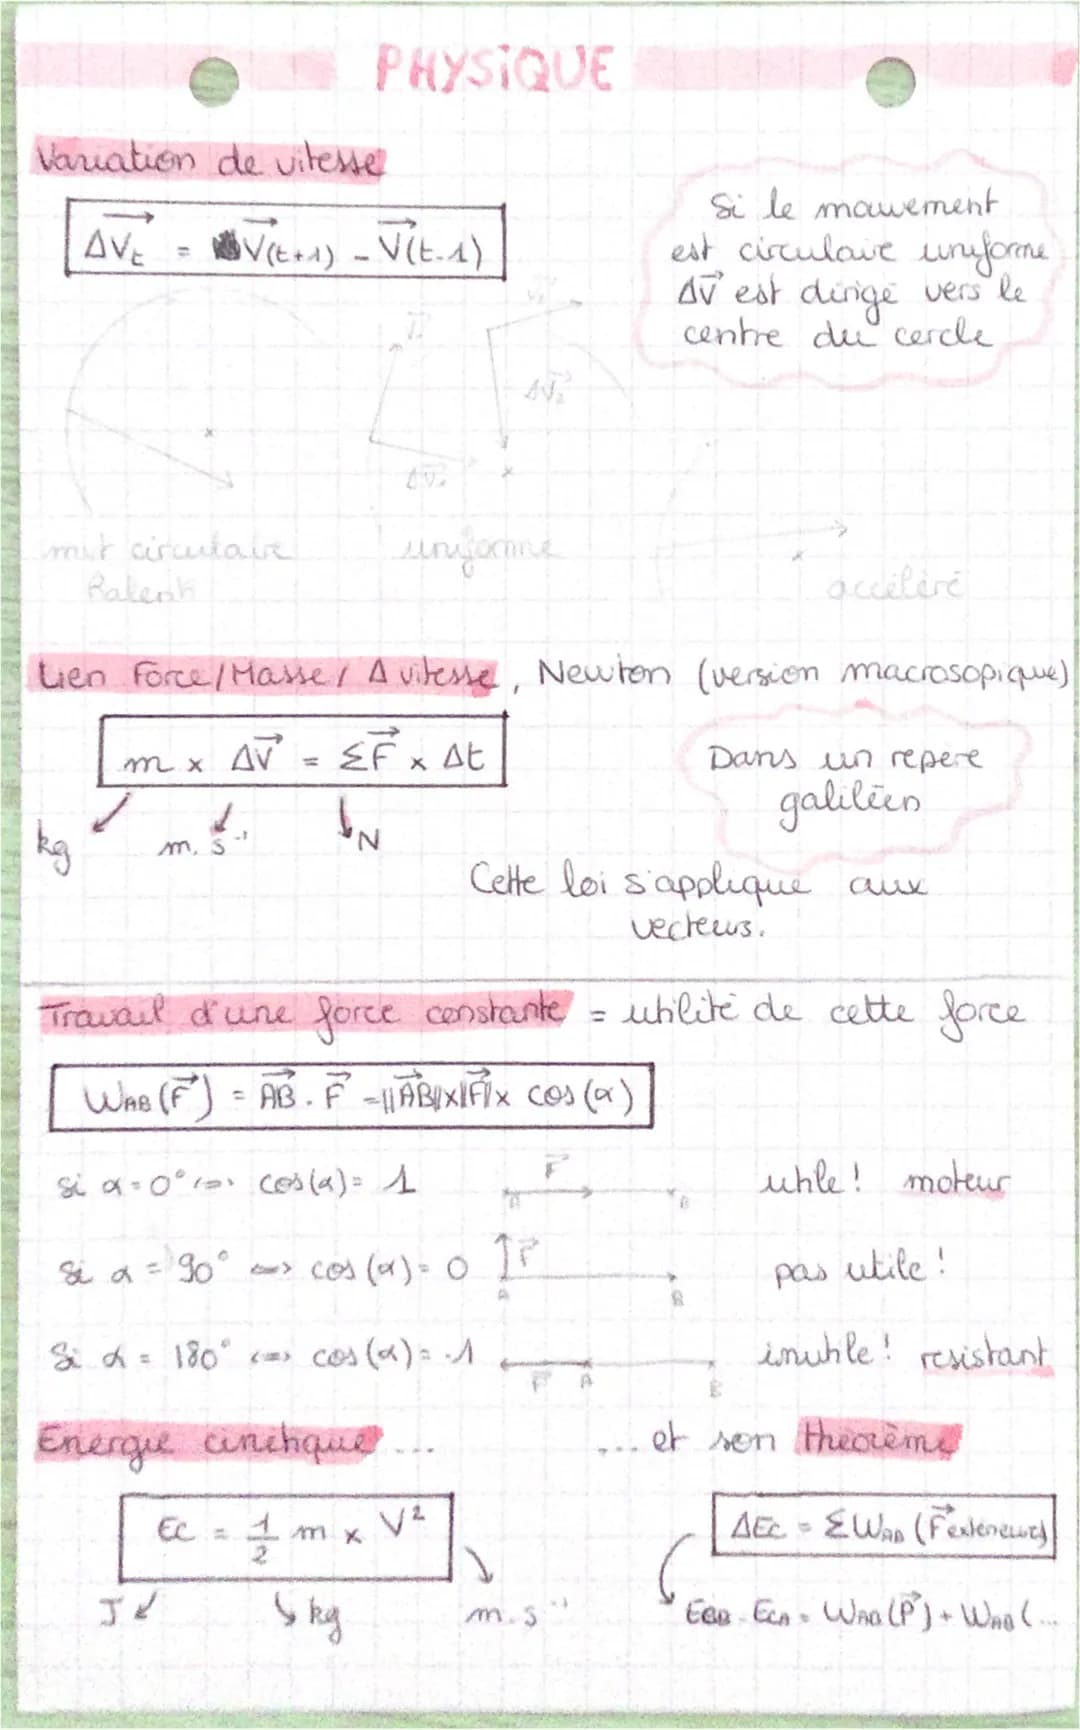 PHYSiQUE
Variation de vitesse
ΔVt = V(t+1) - V(t-1)
Si le mouvement
est circulaire uniforme
ΔV est dirigé vers le
centre du cercle
V2
V1
ΔV2
ΔV1
mvt circulaire
Ralenti
uniforme
accéléré
Lien Force/Masse/ Δ vitesse, Newton (version macrosopique)
m x ΔV = ΣF x Δt
kg
m.s⁻¹
N
Dans un repère
galiléen
Cette loi s'applique aux
vecteurs.
Travail d'une force constante = utilité de cette force
WAB (F) = AB . F = ||AB||x||F|| x cos (α)
si α = 0° <=> cos(α) = 1
F
A
B
utile! moteur
si α = 90° <=> cos (α) = 0
F
A
B
pas utile!
Si α = 180° <=> cos (α) = -1
F A
B
inutile! resistant
Energie cinétique ...
... et son théorème
Ec = 1/2 m x V²
J
kg
m.s⁻¹
ΔEc = ΣWAB (Fexterieures)
ECB - ECA = WAB (P) + WAB (...